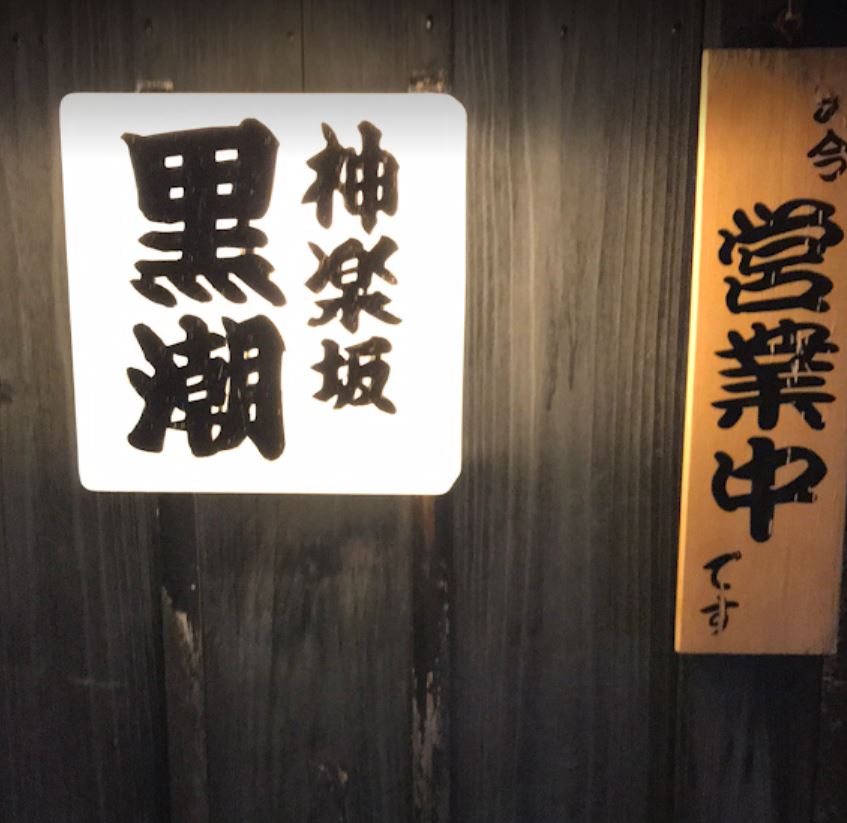 神楽坂
黒潮
今
営業中
です